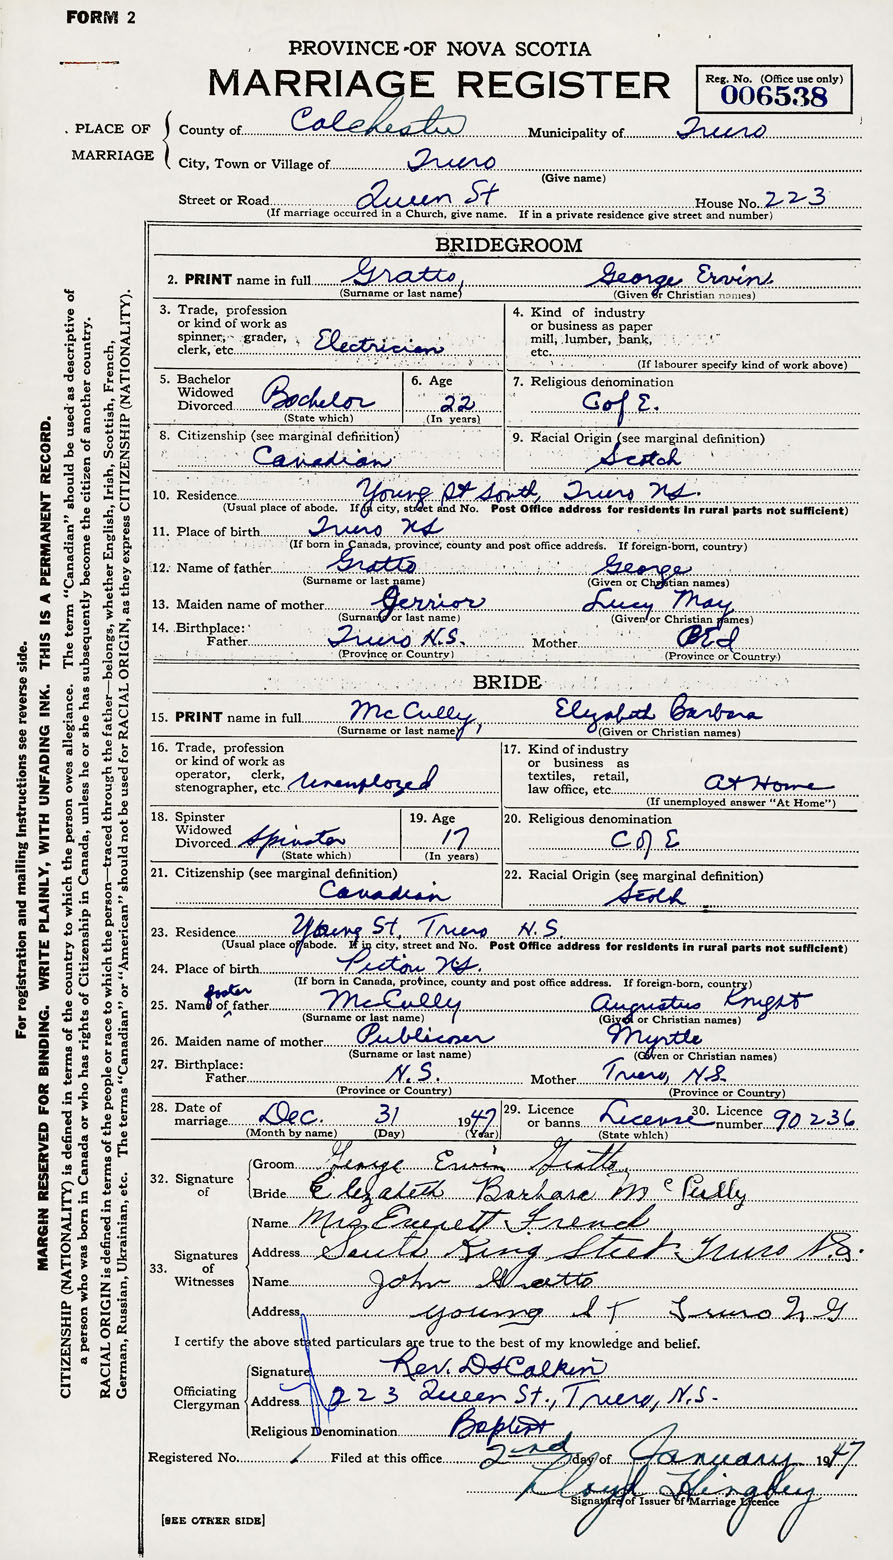 FORM 2
PROVINCE OF NOVA SCOTIA
MARRIAGE REGISTER
Reg. No. (Office use only)
006538
PLACE OF MARRIAGE
County of Colchester Municipality of Truro
City, Town or Village of Truro
(Give name)
Street or Road Queen St House No. 223
(If marriage occurred in a Church, give name. If in a private residence give street and number)
BRIDEGROOM
2. PRINT name in full Gratto, George Ervin
(Surname or last name) (Given or Christian names)
3. Trade, profession or kind of work as spinner, grader, clerk, etc. Electrician
4. Kind of industry or business as paper mill, lumber, bank, etc.
(If labourer specify kind of work above)
5. Bachelor Widowed Divorced Bachelor
(State which)
6. Age 22
(In years)
7. Religious denomination C of E.
8. Citizenship (see marginal definition) Canadian
9. Racial Origin (see marginal definition) Scotch
10. Residence Young St South, Truro NS.
(Usual place of abode. If in city, street and No. Post Office address for residents in rural parts not sufficient)
11. Place of birth Truro NS
(If born in Canada, province, county and post office address. If foreign-born, country)
12. Name of father Gratto George
(Surname or last name) (Given or Christian names)
13. Maiden name of mother Gerrior Lucy May
(Surname or last name) (Given or Christian names)
14. Birthplace: Father Truro N.S. Mother PEI
(Province or Country) (Province or Country)
BRIDE
15. PRINT name in full McCully, Elizabeth Barbara
(Surname or last name) (Given or Christian names)
16. Trade, profession or kind of work as operator, clerk, stenographer, etc. Unemployed
17. Kind of industry or business as textiles, retail, law office, etc. At Home
(If unemployed answer "At Home")
18. Spinster Widowed Divorced Spinster
(State which)
19. Age 17
(In years)
20. Religious denomination C of E
21. Citizenship (see marginal definition) Canadian
22. Racial Origin (see marginal definition) Scotch
23. Residence Young St, Truro N.S.
(Usual place of abode. If in city, street and No. Post Office address for residents in rural parts not sufficient)
24. Place of birth Pictou NS.
(If born in Canada, province, county and post office address. If foreign-born, country)
25. Name of foster father McCully Augustus Knight
(Surname or last name) (Given or Christian names)
26. Maiden name of mother Publicover Myrtle
(Surname or last name) (Given or Christian names)
27. Birthplace: Father N.S. Mother Truro, N.S.
(Province or Country) (Province or Country)
28. Date of marriage Dec. 31 1947
(Month by name) (Day) (Year)
29. Licence or banns License
(State which)
30. Licence number 90236
32. Signature of
Groom George Ervin Gratto
Bride Elizabeth Barbara McCully
33. Signatures of Witnesses
Name Mrs Everett French
Address South King Street Truro N.S.
Name John Gratto
Address young St Truro N S
I certify the above stated particulars are true to the best of my knowledge and belief.
Officiating Clergyman
Signature Rev. D S Calkin
Address 223 Queen St., Truro, N.S.
Religious Denomination Baptist
Registered No. Filed at this office 2nd day of January 1947
Signature of Issuer of Marriage Licence
[SEE OTHER SIDE]
For registration and mailing instructions see reverse side.
MARGIN RESERVED FOR BINDING. WRITE PLAINLY, WITH UNFADING INK. THIS IS A PERMANENT RECORD.
CITIZENSHIP (NATIONALITY) is defined in terms of the country to which the person owes allegiance. The term "Canadian" should be used as descriptive of
a person who was born in Canada or who has rights of Citizenship in Canada, unless he or she has subsequently become the citizen of another country.
RACIAL ORIGIN is defined in terms of the people or race to which the person—traced through the father—belongs, whether English, Irish, Scottish, French,
German, Russian, Ukrainian, etc. The terms "Canadian" or "American" should not be used for RACIAL ORIGIN, as they express CITIZENSHIP (NATIONALITY).